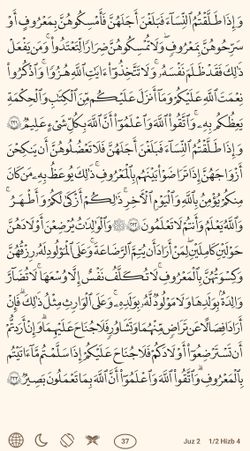 وَإِذَا طَلَّقْتُمُ ٱلنِّسَآءَ فَبَلَغْنَ أَجَلَهُنَّ فَأَمْسِكُوهُنَّ بِمَعْرُوفٍ أَوْ
سَرِّحُوهُنَّ بِمَعْرُوفٍ ۚ وَلَا تُمْسِكُوهُنَّ ضِرَارًا لِّتَعْتَدُوا۟ ۚ وَمَن يَفْعَلْ
ذَٰلِكَ فَقَدْ ظَلَمَ نَفْسَهُۥ ۚ وَلَا تَتَّخِذُوٓا۟ ءَايَٰتِ ٱللَّهِ هُزُوًا ۚ وَٱذْكُرُوا۟
نِعْمَتَ ٱللَّهِ عَلَيْكُمْ وَمَآ أَنزَلَ عَلَيْكُم مِّنَ ٱلْكِتَٰبِ وَٱلْحِكْمَةِ
يَعِظُكُم بِهِۦ ۚ وَٱتَّقُوا۟ ٱللَّهَ وَٱعْلَمُوٓا۟ أَنَّ ٱللَّهَ بِكُلِّ شَىْءٍ عَلِيمٌ ۝٢٣١
وَإِذَا طَلَّقْتُمُ ٱلنِّسَآءَ فَبَلَغْنَ أَجَلَهُنَّ فَلَا تَعْضُلُوهُنَّ أَن يَنكِحْنَ
أَزْوَٰجَهُنَّ إِذَا تَرَٰضَوْا۟ بَيْنَهُم بِٱلْمَعْرُوفِ ۗ ذَٰلِكَ يُوعَظُ بِهِۦ مَن كَانَ
مِنكُمْ يُؤْمِنُ بِٱللَّهِ وَٱلْيَوْمِ ٱلْءَاخِرِ ۗ ذَٰلِكُمْ أَزْكَىٰ لَكُمْ وَأَطْهَرُ ۗ
وَٱللَّهُ يَعْلَمُ وَأَنتُمْ لَا تَعْلَمُونَ ۝٢٣٢ ۞ وَٱلْوَٰلِدَٰتُ يُرْضِعْنَ أَوْلَٰدَهُنَّ
حَوْلَيْنِ كَامِلَيْنِ ۖ لِمَنْ أَرَادَ أَن يُتِمَّ ٱلرَّضَاعَةَ ۚ وَعَلَى ٱلْمَوْلُودِ لَهُۥ رِزْقُهُنَّ
وَكِسْوَتُهُنَّ بِٱلْمَعْرُوفِ ۚ لَا تُكَلَّفُ نَفْسٌ إِلَّا وُسْعَهَا ۚ لَا تُضَآرَّ
وَٰلِدَةٌۢ بِوَلَدِهَا وَلَا مَوْلُودٌ لَّهُۥ بِوَلَدِهِۦ ۚ وَعَلَى ٱلْوَارِثِ مِثْلُ ذَٰلِكَ ۗ فَإِنْ
أَرَادَا فِصَالًا عَن تَرَاضٍ مِّنْهُمَا وَتَشَاوُرٍ فَلَا جُنَاحَ عَلَيْهِمَا ۗ وَإِنْ أَرَدتُّمْ
أَن تَسْتَرْضِعُوٓا۟ أَوْلَٰدَكُمْ فَلَا جُنَاحَ عَلَيْكُمْ إِذَا سَلَّمْتُم مَّآ ءَاتَيْتُم
بِٱلْمَعْرُوفِ ۗ وَٱتَّقُوا۟ ٱللَّهَ وَٱعْلَمُوٓا۟ أَنَّ ٱللَّهَ بِمَا تَعْمَلُونَ بَصِيرٌ ۝٢٣٣
37 Juz 2 1/2 Hizb 4